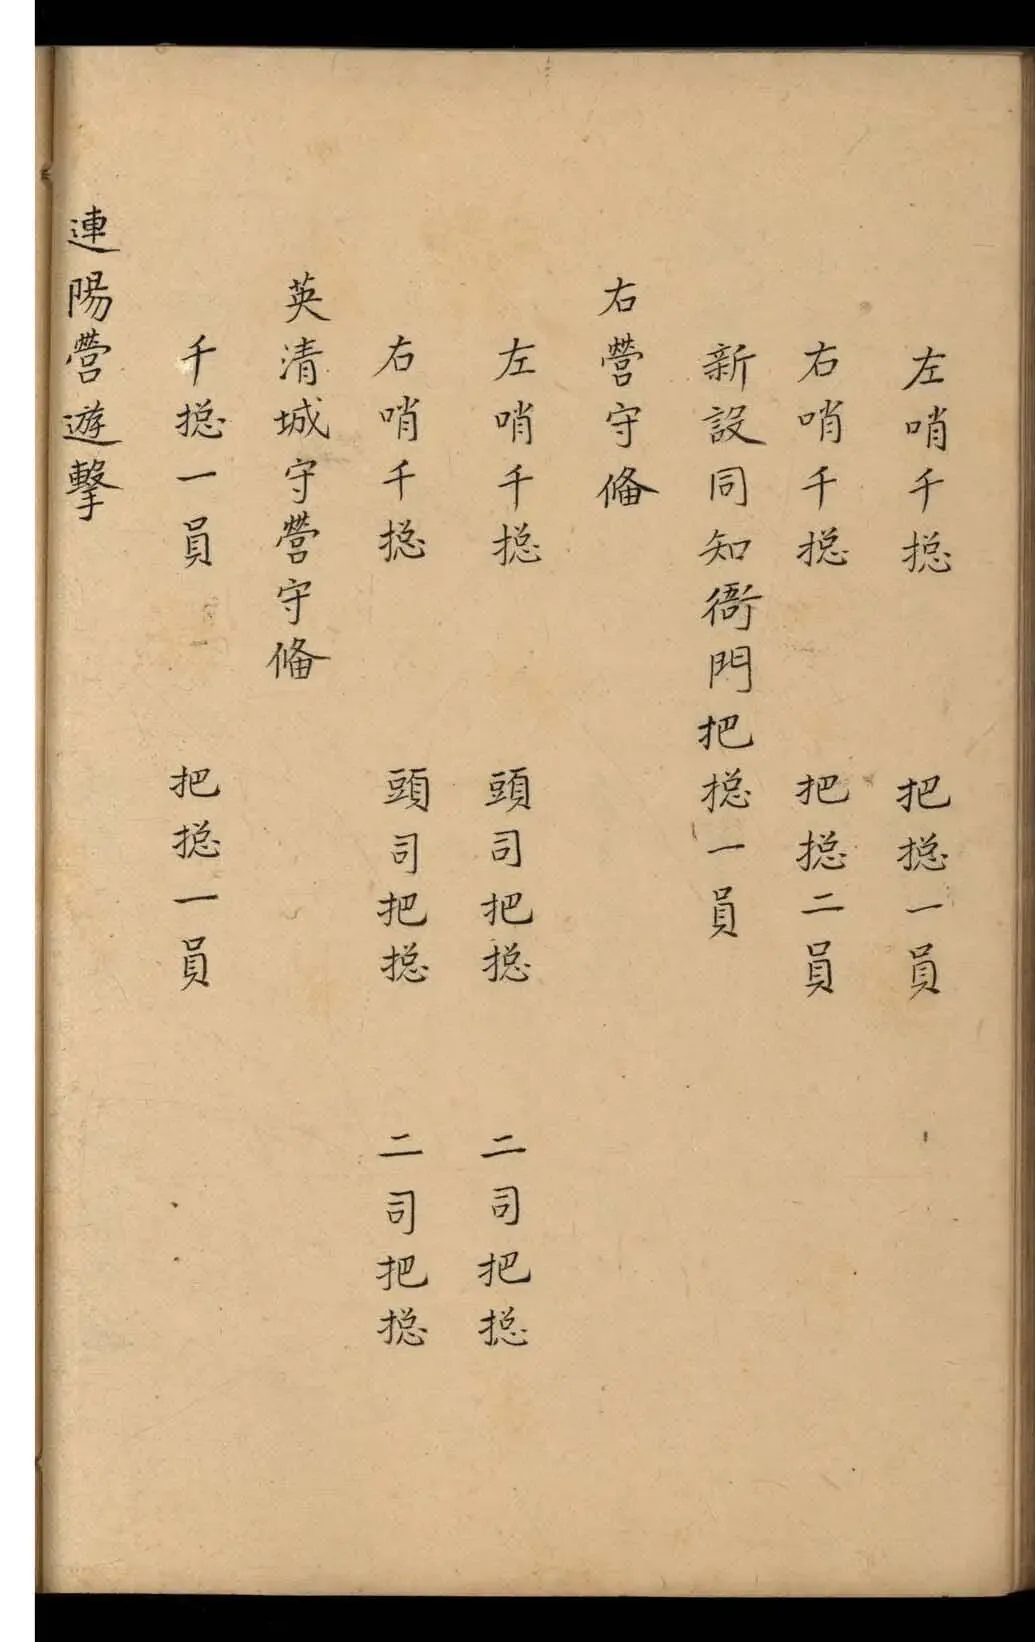 左哨千揔　把揔一員
右哨千揔　把揔二員
新設同知衙門把揔一員
右營守俻
左哨千揔　頭司把揔　二司把揔
右哨千揔　頭司把揔　二司把揔
英清城守營守俻
千揔一員　把揔一員
連陽營遊擊